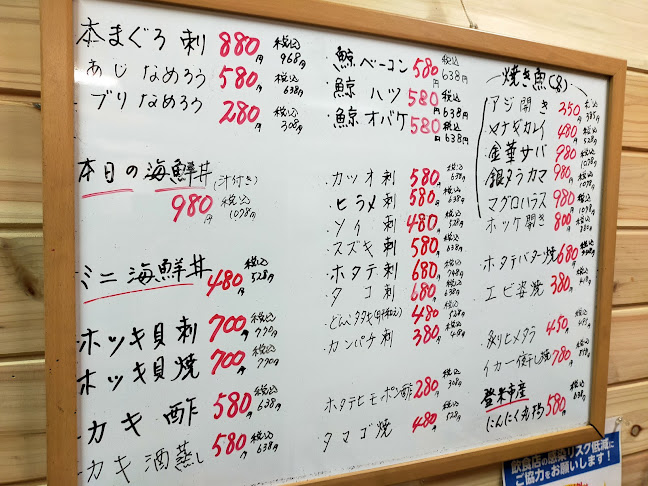 本まぐろ刺 880円 税込968円
あじなめろう 580円 税込638円
ブリなめろう 280円 税込308円
本日の海鮮丼(汁付き)
980円 税込1078円
ミニ海鮮丼 480円 税込528円
ホッキ貝刺 700円 税込770円
ホッキ貝焼 700円 税込770円
カキ酢 580円 税込638円
カキ酒蒸し 580円 税込638円
鯨ベーコン 580円 税込638円
鯨ハツ 580円 税込638円
鯨オバケ 580円 税込638円
カツオ刺 580円 税込638円
ヒラメ刺 580円 税込638円
ソイ刺 480円 税込528円
スズキ刺 580円 税込638円
ホタテ刺 680円 税込748円
タコ刺 680円 税込
480円 税込528円
カンパチ刺 380円 税込
ホタテヒモポン酢 280円 税込308円
タマゴ焼 480円 税込528円
焼き魚
アジ開き 350円 税込385円
ナメタガレイ 480円 税込528円
金華サバ 980円 税込1078円
銀ダラカマ 980円 税込1078円
マグロハラス 980円 税込1078円
ホッケ開き 800円 税込880円
ホタテバター焼 680円 税込
エビ姿焼 380円 税込418円
炙りヒメダラ 450円 税込495円
イカ一夜干し焼 780円 税込
登米市産
にんにく丸揚 580円 税込638円
飲食店の感染リスク低減に
ご協力をお願いします!